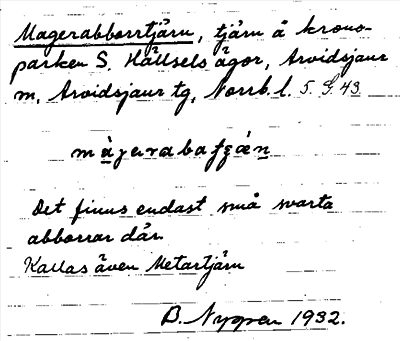 Magerabborrtjärn, tjärn å krono-
parken S. Hällsels ägor, Arvidsjaur
sn, Arvidsjaur tg, Norrb. l. 5. S. 43
Det finns endast små svarta
abborrar där.
Kallas även Metartjärn
B. Nygren 1932.